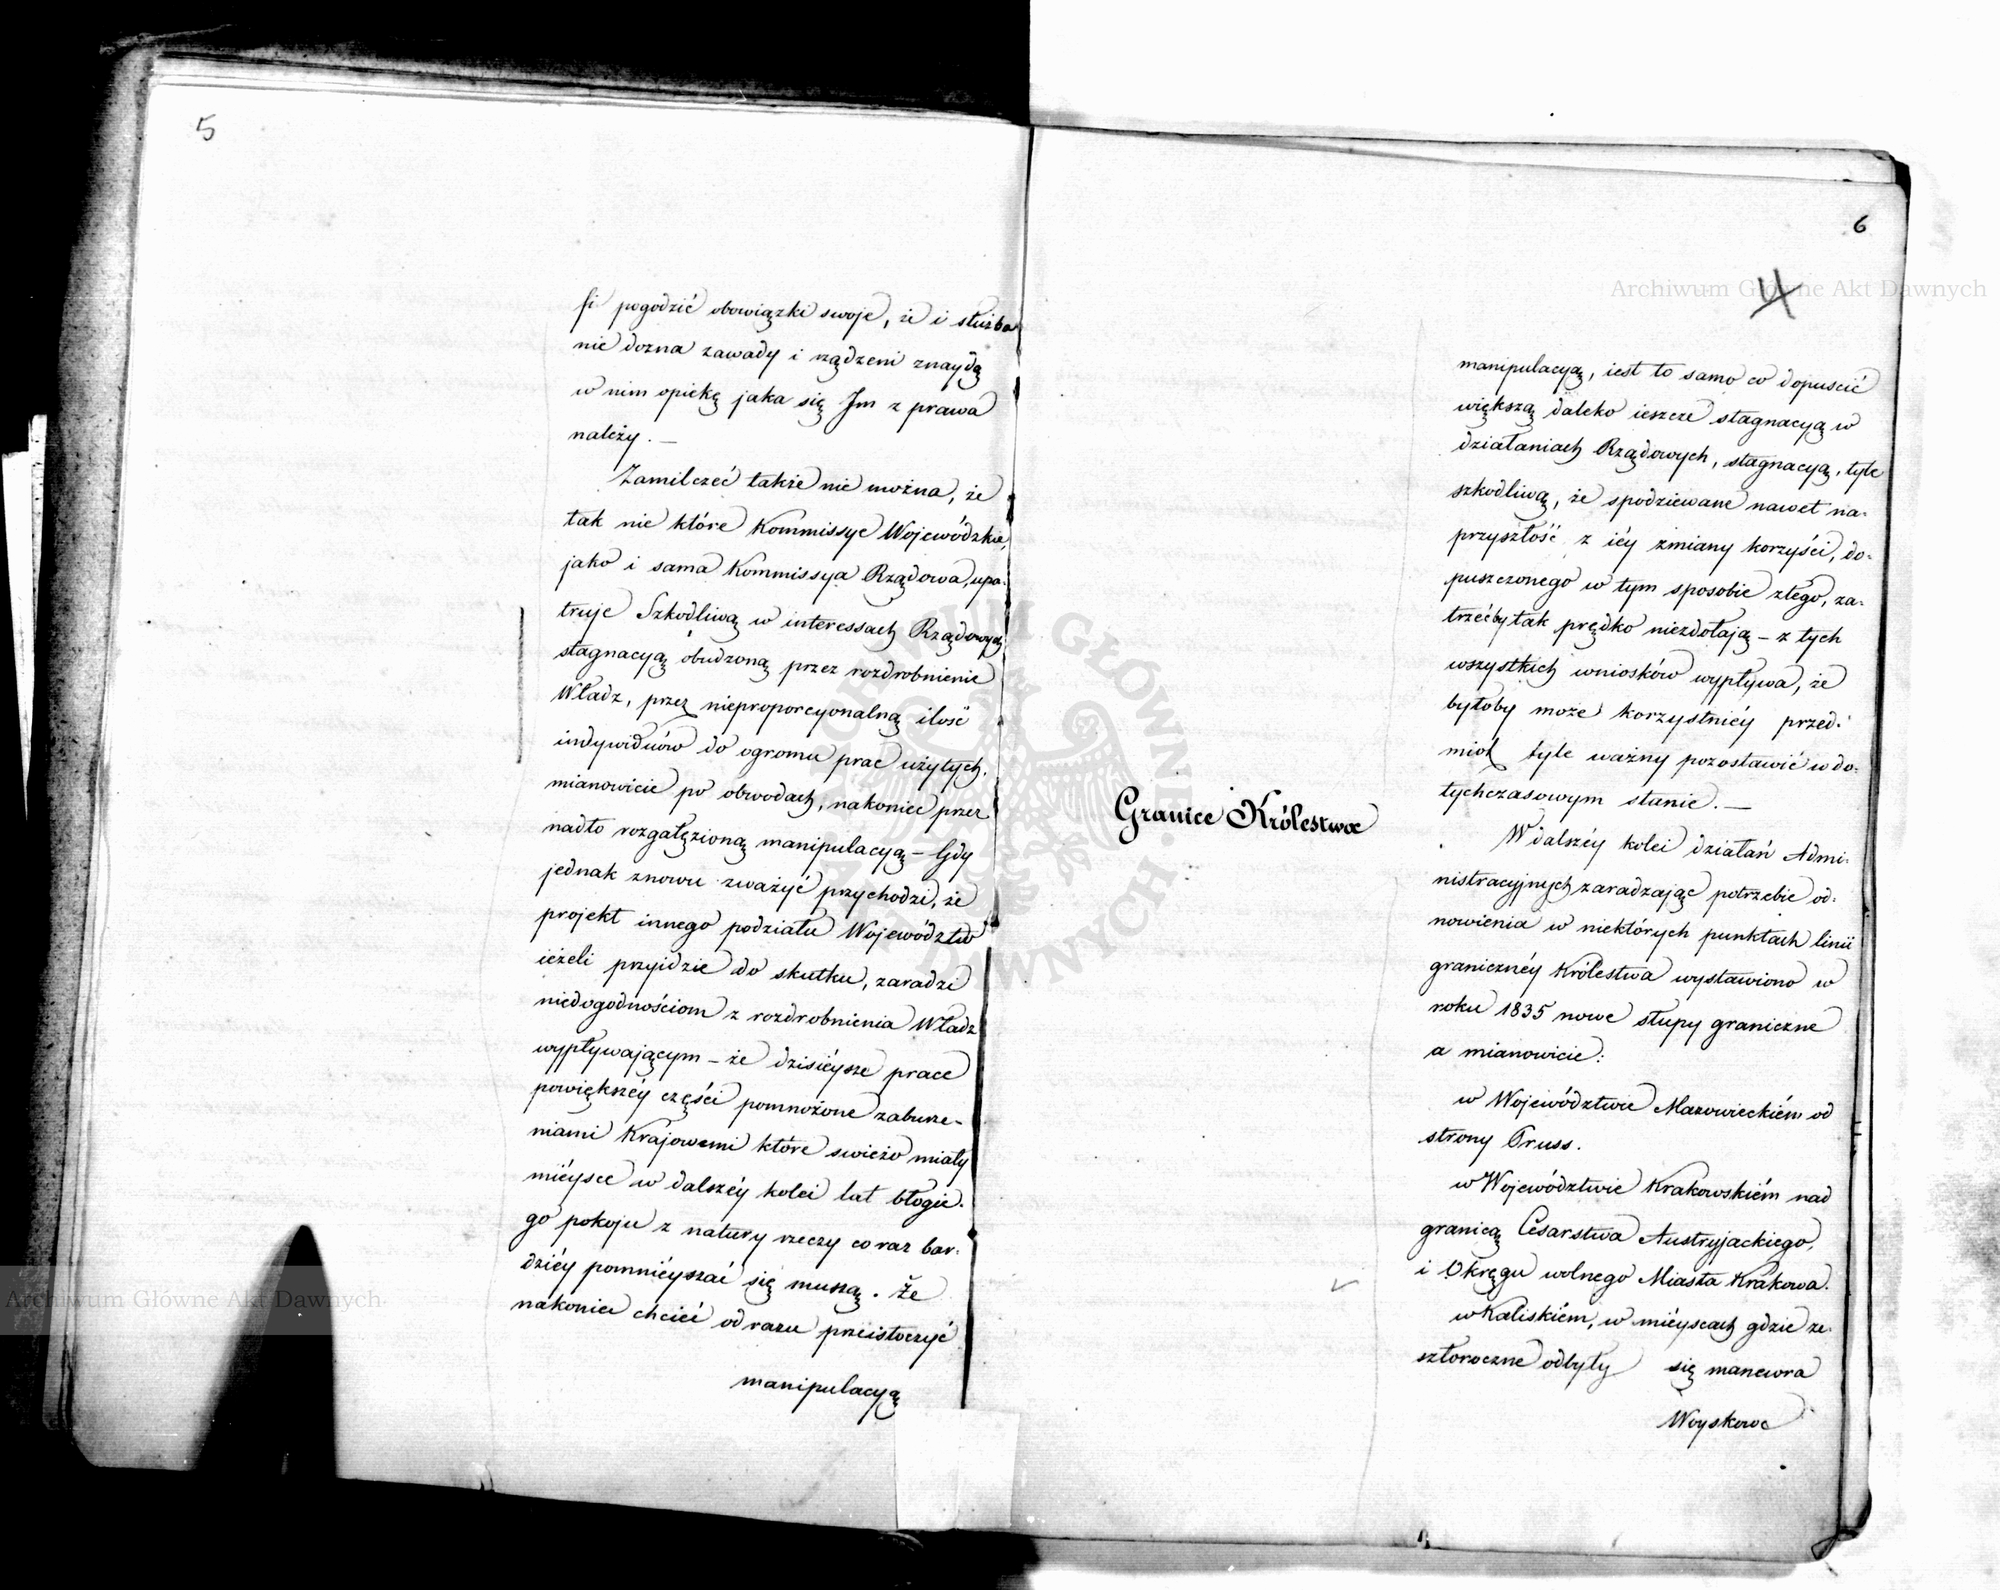 5
fi pogodzić obowiązki swoje, że i służba
nie dozna zawady i rządzeni znaydą
w nim opiekę jaka się Im z prawa
należy. —
Zamilczeć także nie można, że
tak nie które Kommissye Wojewódzkie,
jako i sama Kommissya Rządowa, upa-
truje Szkodliwą w interessach Rządowych
stagnacyą obudzoną przez rozdrobnienie
Władz, przez nieproporcyonalną ilość
indywiduów do ogromu prac użytych,
mianowicie po obwodach, nakoniec przez
nadto rozgałęzioną manipulacyą — Gdy
jednak znowu zważyć przychodzi, że
projekt innego podziału Województw
ieżeli przyidzie do skutku, zaradzi
niedogodnościom z rozdrobnienia Władz
wypływającym — że dzisiéysze prace
powiększéy części pomnożone zabuże-
niami Krajowemi które swieżo miały
miéysce w dalszéy kolei lat błogie-
go pokoju z natury rzeczy co raz bar-
dziéy pomniéyszać się muszą. Że
nakoniec chcieć od razu przeistoczyć
manipulacyą
6
manipulacyą, iest to samo co dopuscić
większą daleko ieszcze stagnacyą w
działaniach Rządowych, stagnacyą, tyle
szkodliwą, że spodziewane nawet na-
przyszłość z iéy zmiany korzyści, do-
puszczonego w tym sposobie złego, za-
trzećby tak prędko niezdołają — z tych
wszystkich wniosków wypływa, że
byłoby może korzystniéy przed-
miot tyle ważny pozostawić w do-
tychczasowym stanie. —
Granice Królestwa
W dalszéy kolei działań Admi-
nistracyjnych zaradzając potrzebie od-
nowienia w niektórych punktach linii
granicznéy Królestwa wystawiono w
roku 1835 nowe słupy graniczne
a mianowicie:
w Województwie Mazowieckiém od
strony Pruss.
w Województwie Krakowskiém nad
granicą Cesarstwa Austryjackiego,
i Okręgu wolnego Miasta Krakowa.
w Kaliskiém, w miéyscach gdzie ze-
szłoroczne odbyły się manewra
Woyskowe
Archiwum Główne Akt Dawnych
Archiwum Główne Akt Dawnych